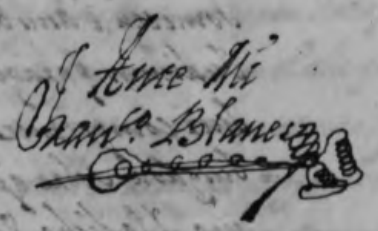 Ante Mi
Franco. Blanco